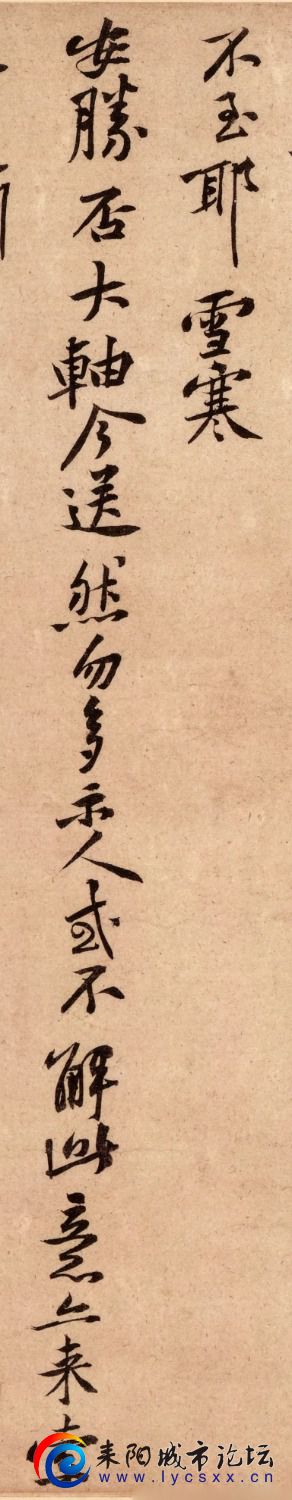 不至耶 雪寒
安勝否大軸今送然勿多示人或不解此意亦来
耒阳城市论坛
www.lycsxx.cn